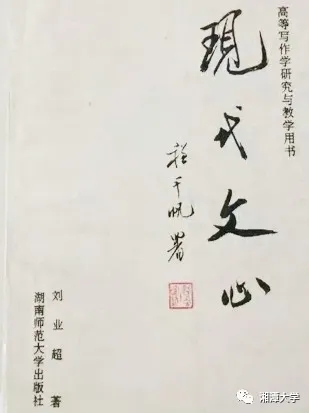 高等写作学研究与教学用书
现代文心
程千帆署
刘业超 著
湖南师范大学出版社
湘潭大学